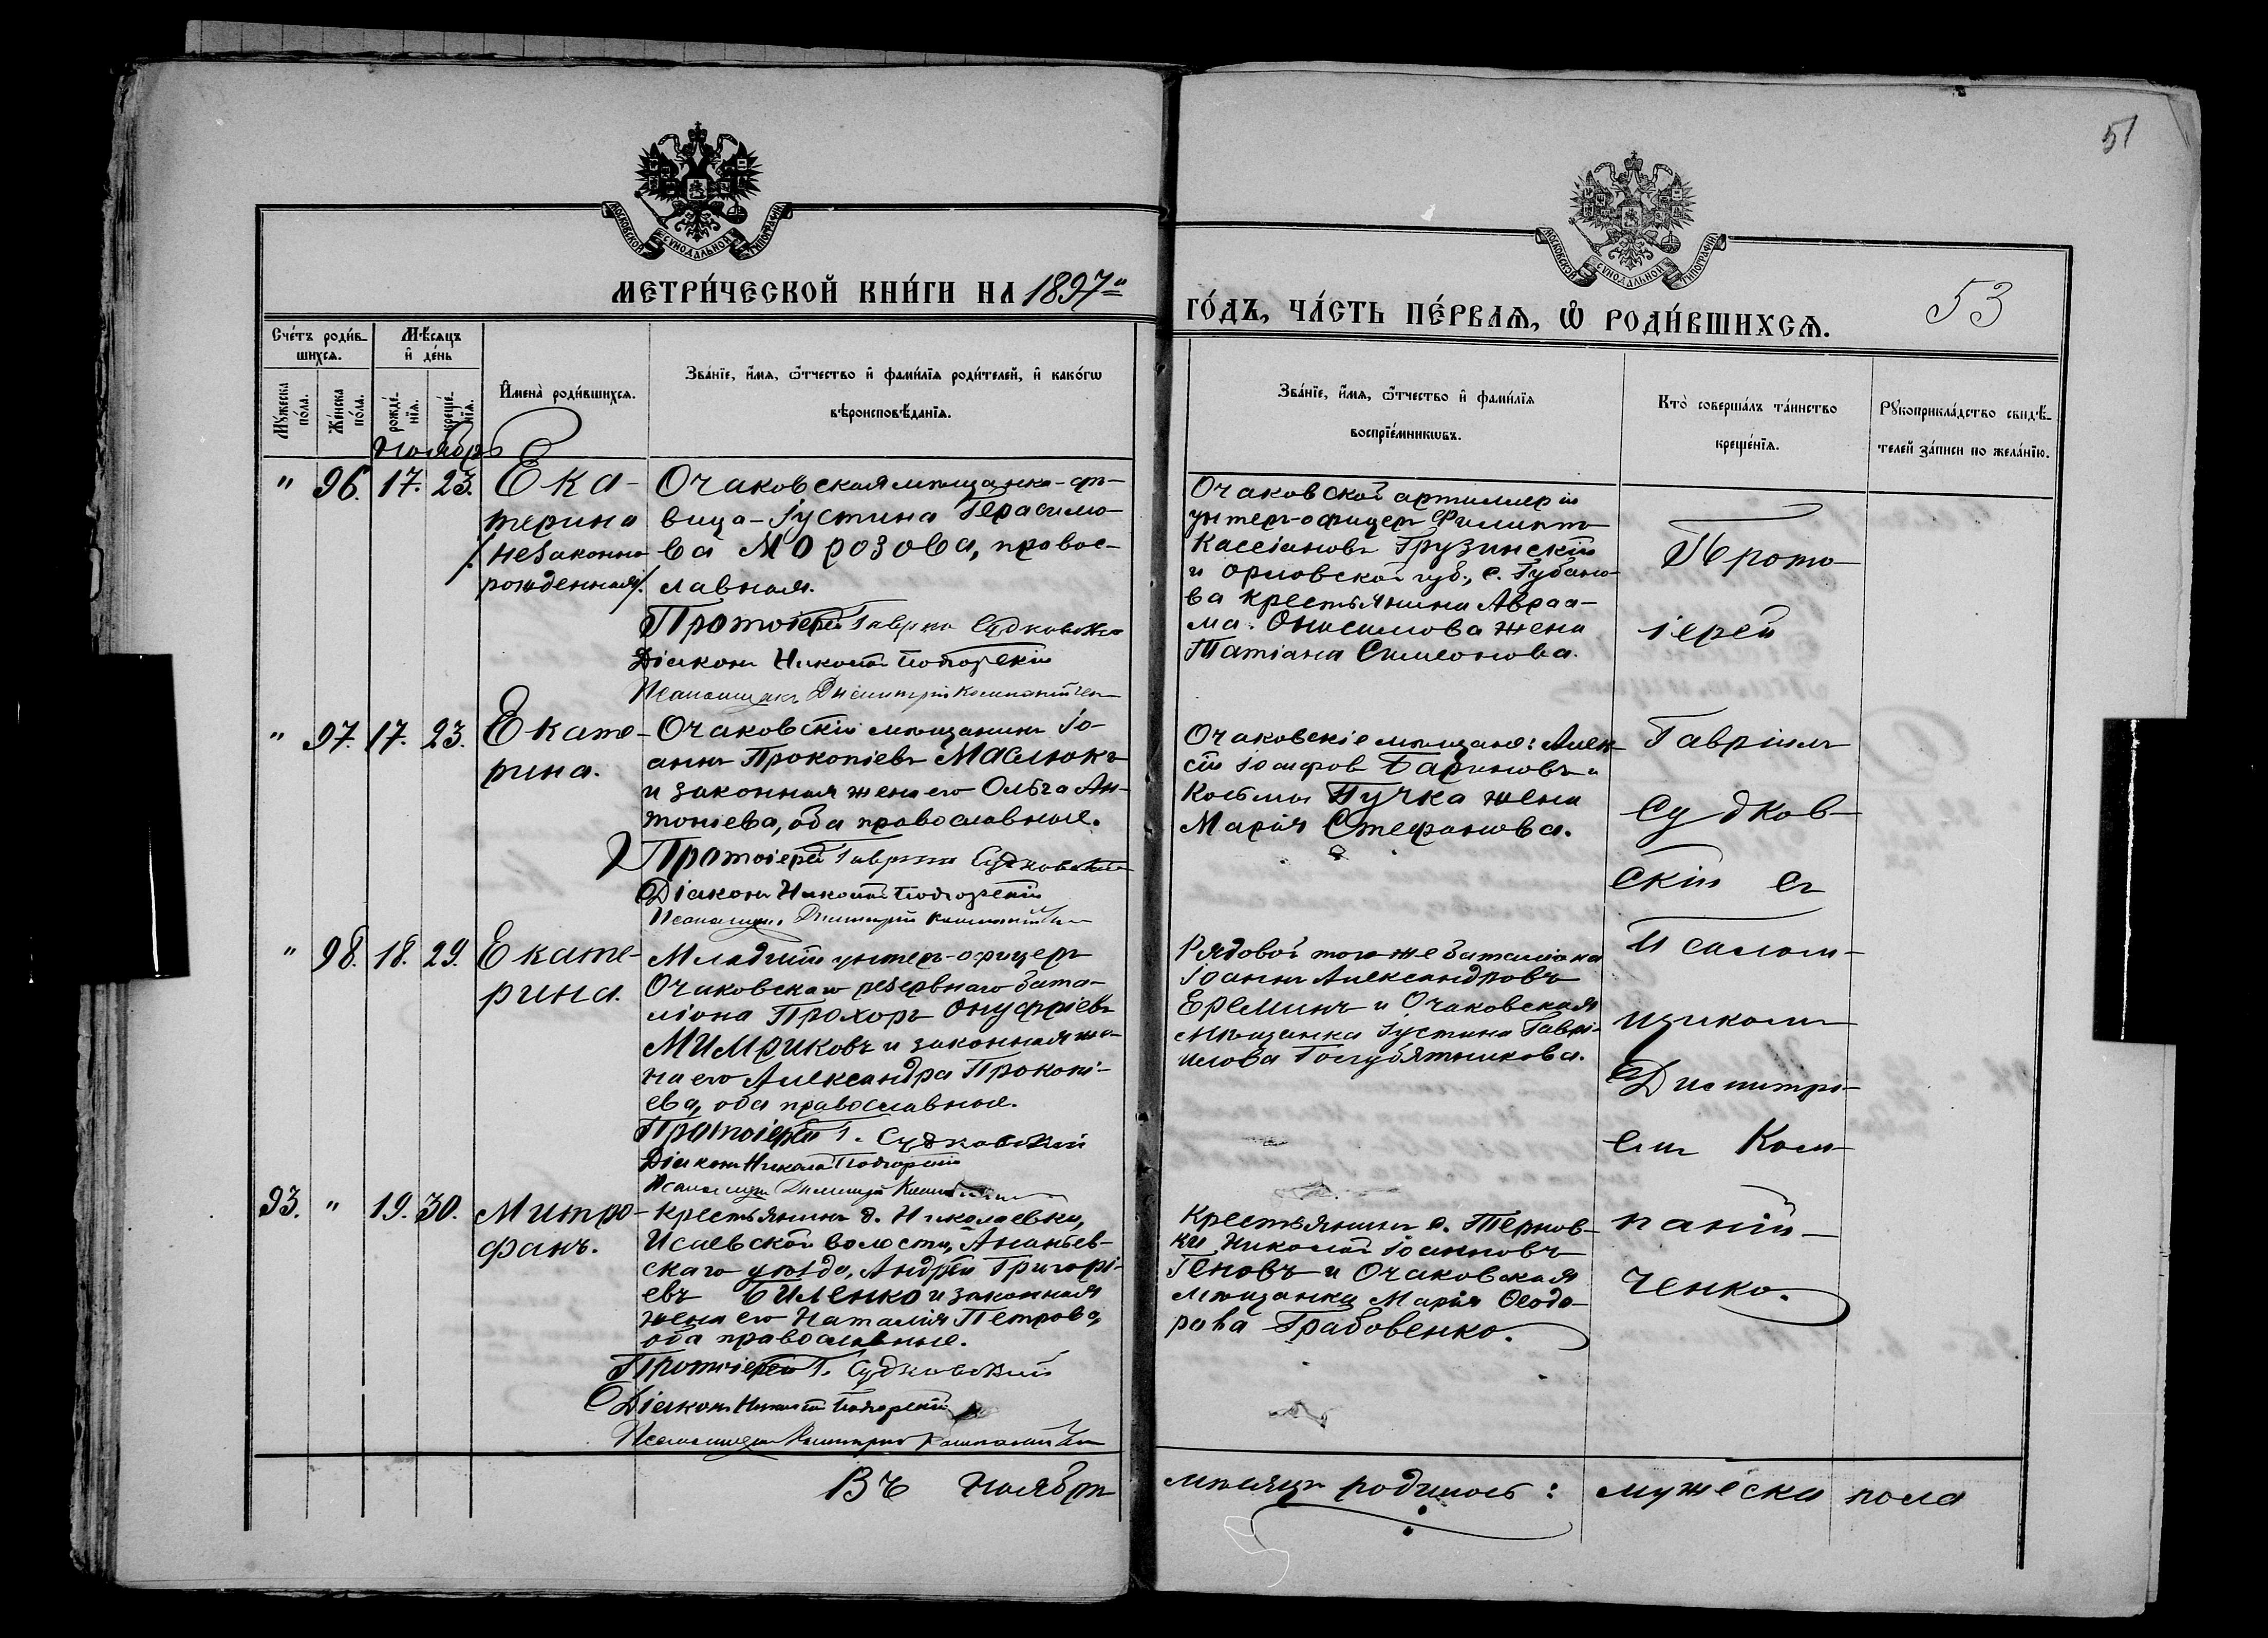 51
МОСКОВСКОЙ СѴНОДАЛЬНОЙ ТИПОГРАФІИ
МОСКОВСКОЙ СѴНОДАЛЬНОЙ ТИПОГРАФІИ
МЕТРИ́ЧЕСКОЙ КНИ́ГИ НА 1897 "
ГО́ДЪ, ЧА́СТЬ ПЕ́РВАѦ, Ѽ РОДИ́ВШИХСѦ.
53
Сче́тъ роди́в-
шихсѧ.
Мꙋ́жеска по́ла.
Же́нска по́ла.
Мѣ́сѧцъ
и҆ де́нь
рожде́-нїѧ.
креще́-нїѧ.
И҆мена̀ роди́вшихсѧ.
Зва́нїе, и҆́мѧ, ѻ҆́тчество и҆ фами́лїѧ роди́телей, и҆ како́гѡ
вѣроисповѣ́данїѧ.
Зва́нїе, и҆́мѧ, ѻ҆́тчество и҆ фами́лїѧ
воспрїе́мникѡвъ.
Кто̀ соверша́лъ та́инство
креще́нїѧ.
Рꙋкоприкла́дство свидѣ́-
телей за́писи по жела́нїю.
Ноябрь
" 96. 17. 23.
Ека-
терина
/незаконно
рожденная/.
Очаковская мѣщанка-дѣ-
вица - Іустина Герасимо-
ва Морозова, правос-
лавная.
Протоіерей Гавріил Судковскій
Діаконъ Николай Подгорскій
Псаломщикъ Димитрій Компанійченко
Очаковской артиллеріи
унтеръ-офицеръ Филиппъ
Кассіановъ Грузинскій
и Орловской губ., с. Губано-
ва крестьянина Авраа-
ма Онисимова жена
Татіана Симеонова.
" 97. 17. 23.
Екате-
рина.
Очаковскій мѣщанинъ Іо-
аннъ Прокопіевъ Маслюкъ
и законная жена его Ольга Ан-
тоніева, оба православные.
Протоіерей Гавріил Судковскій
Діаконъ Николай Подгорскій
Псаломщ. Димитрій Компанійченко
Очаковскіе мѣщане: Алек-
сій Іосифов Бариновъ и
Косьмы Пучка жена
Марія Стефанова.
" 98. 18. 29.
Екате-
рина.
Младшій унтеръ-офицеръ
Очаковскаго резервнаго бата-
ліона Прохоръ Онуфріевъ
Мимриковъ и законная же-
на его Александра Прокопі-
ева, оба православные.
Протоіерей Г. Судковскій
Діаконъ Николай Подгорскій
Псаломщ. Димитрій
Рядовой того же баталіона
Іоаннъ Александровъ
Ереминъ и Очаковская
мѣщанка Іустина Гаврі-
илова Голубятникова.
93. " 19. 30.
Митро-
фанъ.
Крестьянинъ д. Николаевки,
Исаевской волости, Ананьев-
скаго уѣзда, Андрей Григорі-
евъ Биленко и законная
жена его Наталія Петрова,
оба православные.
Протоіерей Г. Судковскій
Діаконъ Николай Подгорскій
Псаломщик Димитрій Компанійченко
Крестьянинъ с. Тернов-
ки Николай Іоанновъ
Геновъ и Очаковская
мѣщанка Марія Ѳеодо-
рова Грабовенко.
Прото-
іерей
Гавріилъ
Судков-
скій съ
Псалом-
щикомъ
Димитрі-
емъ Ком-
паній-
ченко.
Въ Ноябрѣ
мѣсяцѣ родилось: мужеска пола